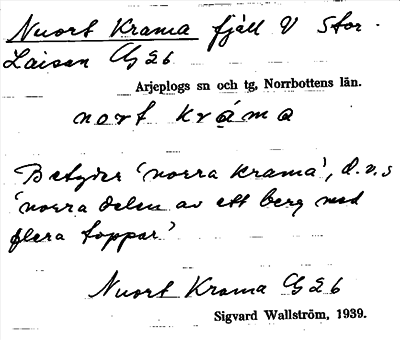 Nuort Krama fjäll V Stor-
Laisan G26
Arjeplogs sn och tg, Norrbottens län.
nort kráma
Betyder 'norra krama', d.v.s
'norra delen av ett berg med
flera toppar'
Nuort Krama G26
Sigvard Wallström, 1939.